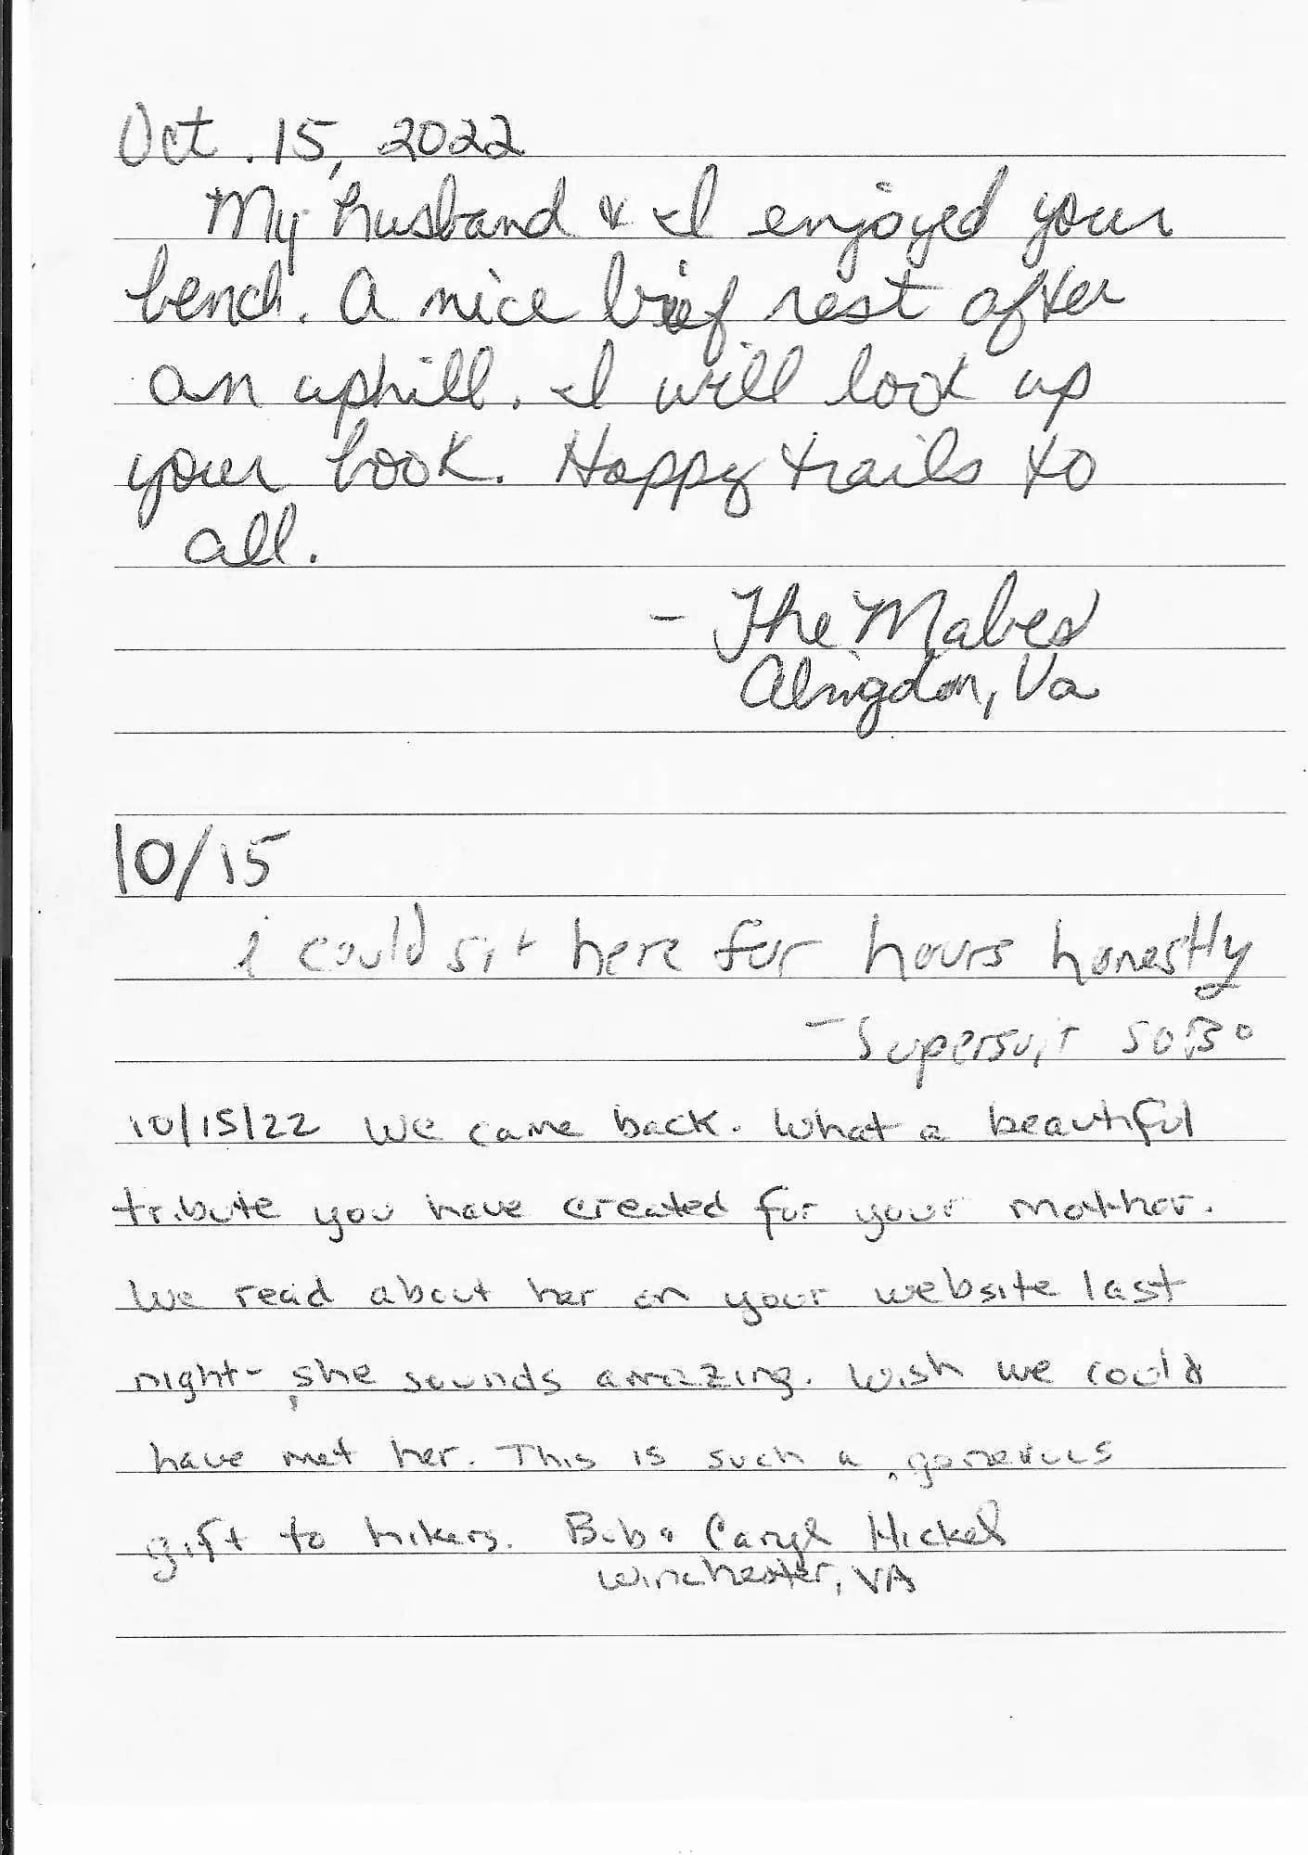 Oct. 15, 2022
My husband & I enjoyed your
bench. A nice brief rest after
an uphill. I will look up
your book. Happy trails to
all.
- The Mabes
Abingdon, Va
10/15
i could sit here for hours honestly
- Supersuit SOBO
10/15/22 We came back. What a beautiful
tribute you have created for your mother.
We read about her on your website last
night - she sounds amazing. Wish we could
have met her. This is such a generous
gift to hikers. Bob & Caryl Hickel
Winchester, VA